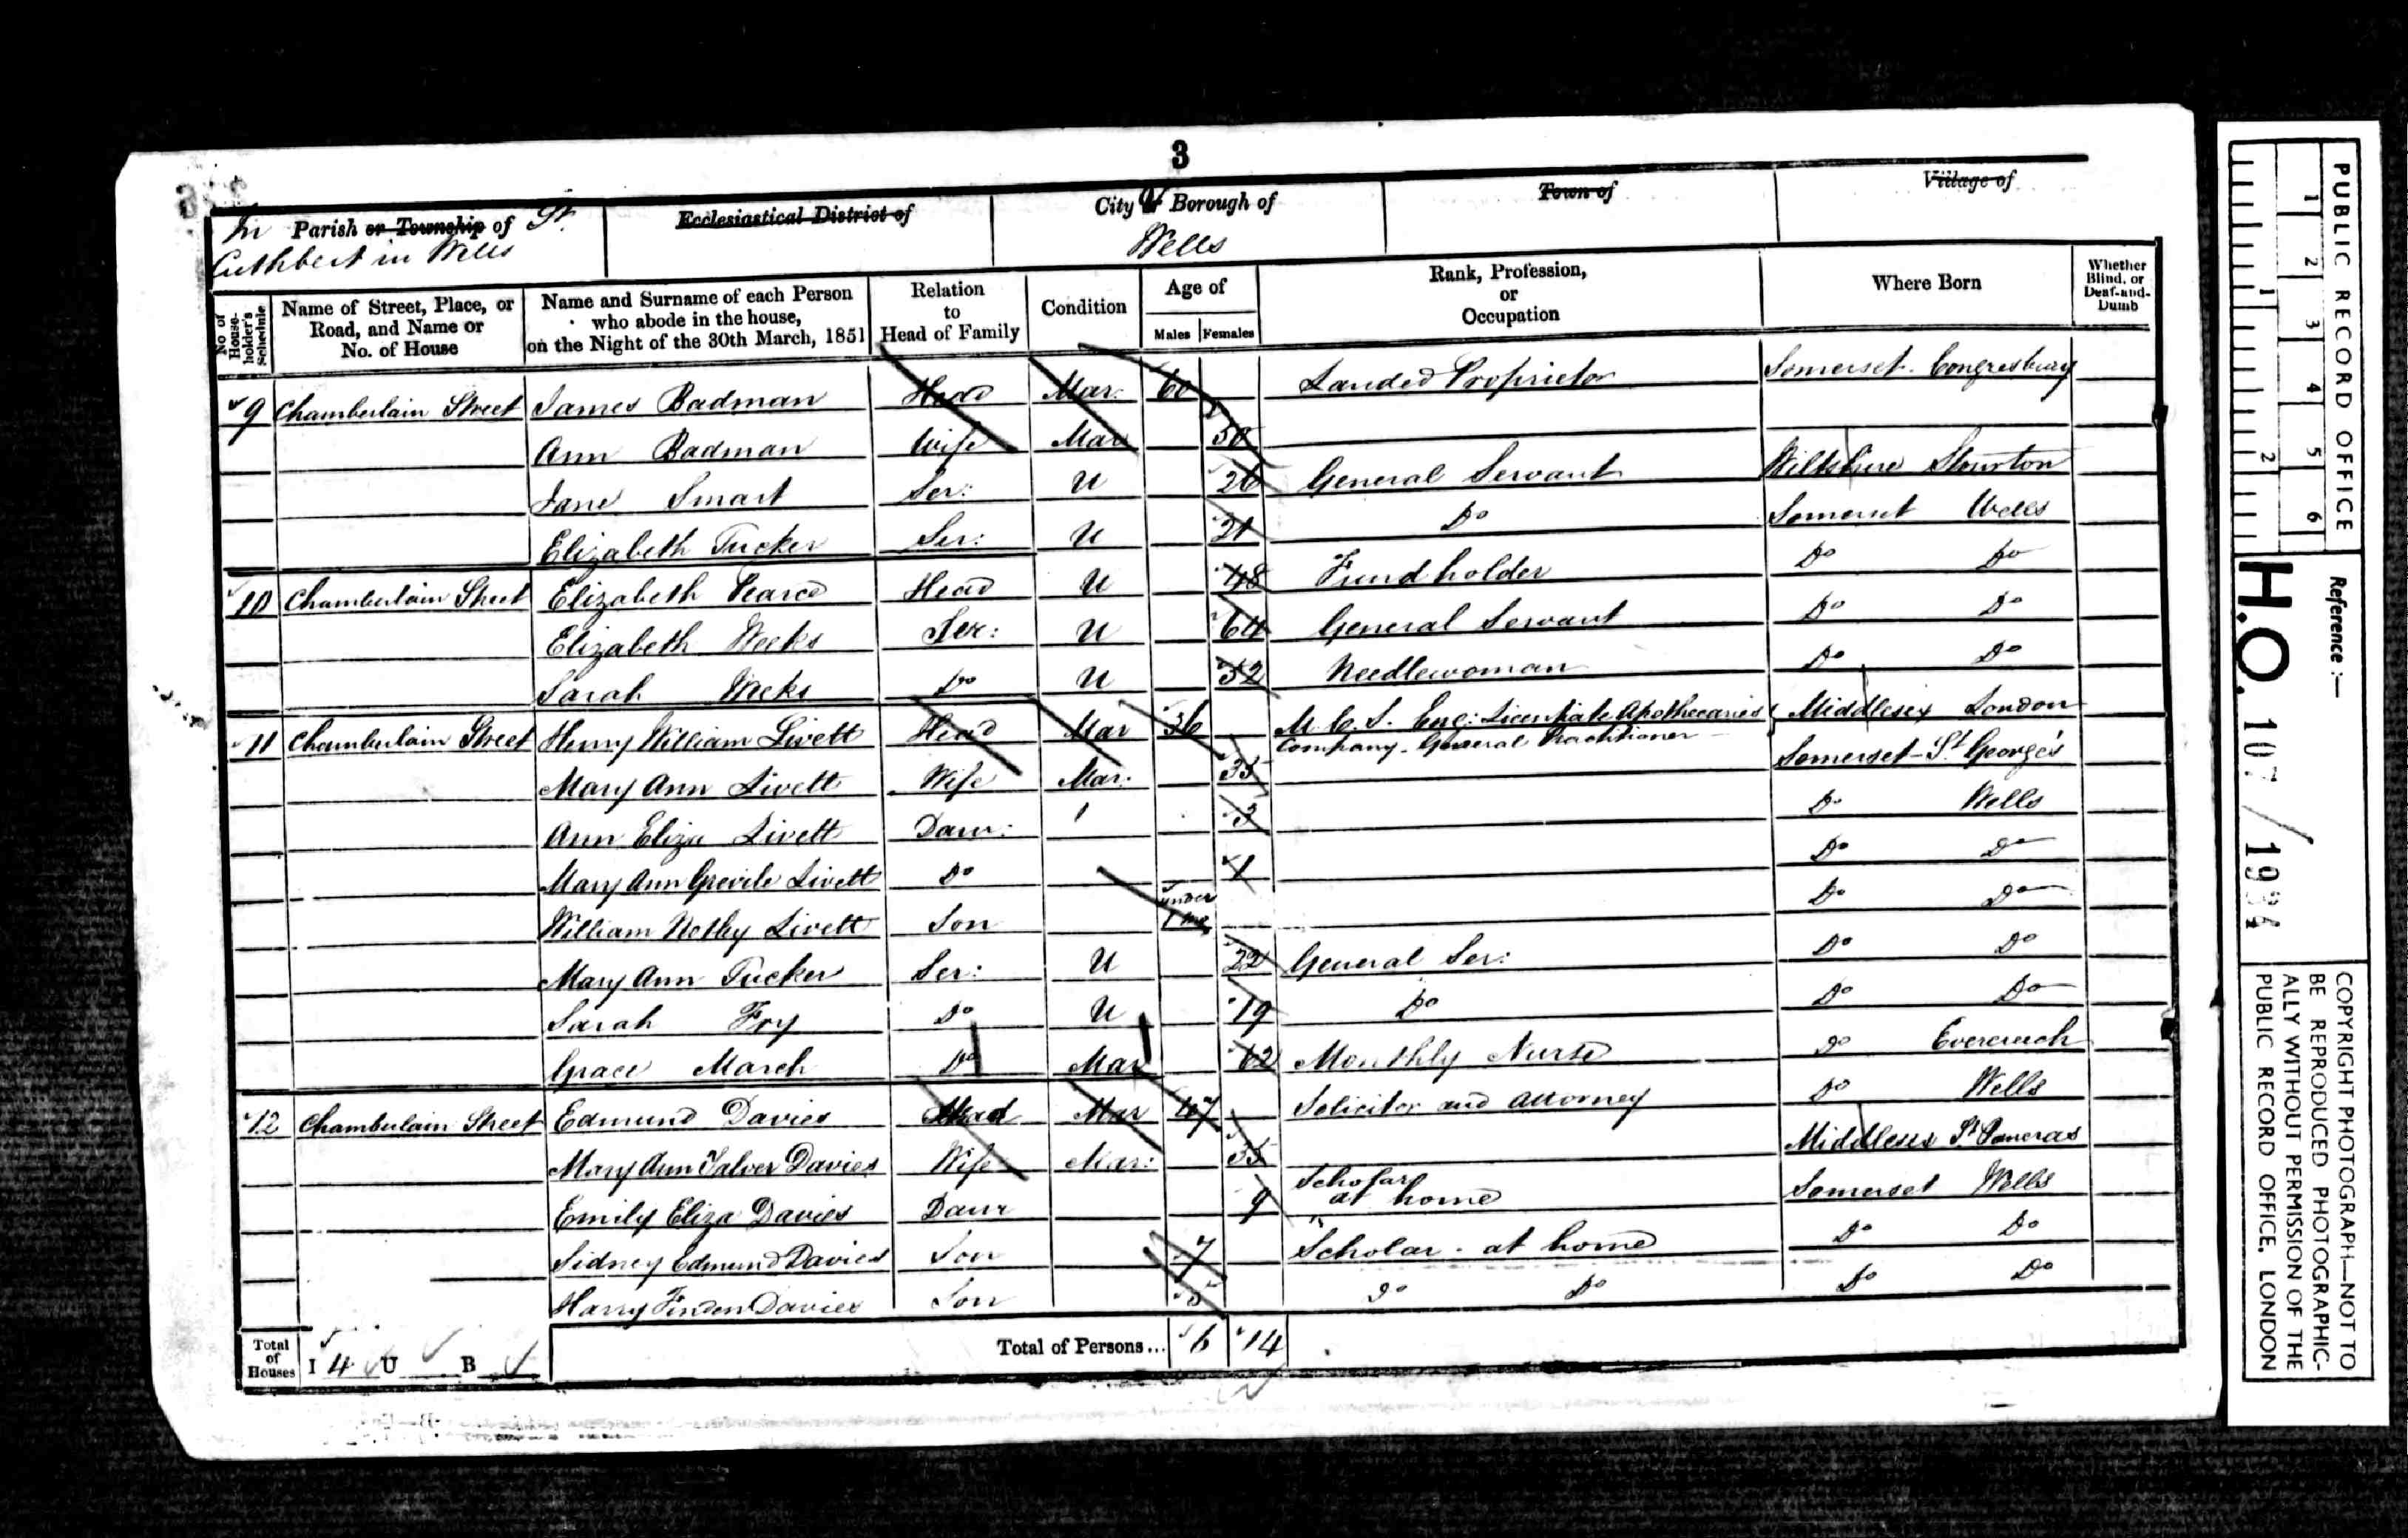 3
In Parish or Township of St.
Cuthbert in Wells
Ecclesiastical District of
City or Borough of
Wells
Town of
Village of
No of House-holder's Schedule
Name of Street, Place, or Road, and Name or No. of House
Name and Surname of each Person who abode in the house, on the Night of the 30th March, 1851
Relation to Head of Family
Condition
Age of
Males Females
Rank, Profession, or Occupation
Where Born
Whether Blind, or Deaf-and-Dumb
9 Chamberlain Street James Badman Head Mar. 60 Landed Proprietor Somerset Congresbury
Ann Badman Wife Mar 50
Jane Smart Ser: U 26 General Servant Wiltshire Stourton
Elizabeth Tucker Ser: U 21 Do Somerset Wells
10 Chamberlain Street Elizabeth Pearce Head U 48 Fundholder Do Do
Elizabeth Weeks Ser: U 64 General Servant Do Do
Sarah Weeks Do U 52 Needlewoman Do Do
11 Chamberlain Street Henry William Livett Head Mar 36 M.C.S. Eng: Licentiate Apothecaries Middlesex London
Company - General Practitioner
Mary Ann Livett Wife Mar. 35 Somerset - St George's
Ann Eliza Livett Daur: 3 Do Wells
Mary Ann Grevile Livett Do 1 Do Do
William Notley Livett Son under 1 Do Do
Mary Ann Tucker Ser: U 22 General Ser: Do Do
Sarah Fry Do U 19 Do Do Do
Grace March Do Mar 62 Monthly Nurse Do Evercreech
12 Chamberlain Street Edmund Davies Head Mar 47 Solicitor and Attorney Do Wells
Mary Ann Davies Wife Mar: 35 Middlesex St Pancras
Emily Eliza Davies Daur 9 Scholar at home Somerset Wells
Sidney Edmund Davies Son 7 Scholar - at home Do Do
Harry Finden Davies Son 5 Do Do Do Do
Total of Houses I 4 U B
Total of Persons... 6 14
PUBLIC RECORD OFFICE
1 2 3 4 5 6
1 2
Reference :-
H.O. 107 / 1934
COPYRIGHT PHOTOGRAPH—NOT TO
BE REPRODUCED PHOTOGRAPHIC-
ALLY WITHOUT PERMISSION OF THE
PUBLIC RECORD OFFICE, LONDON